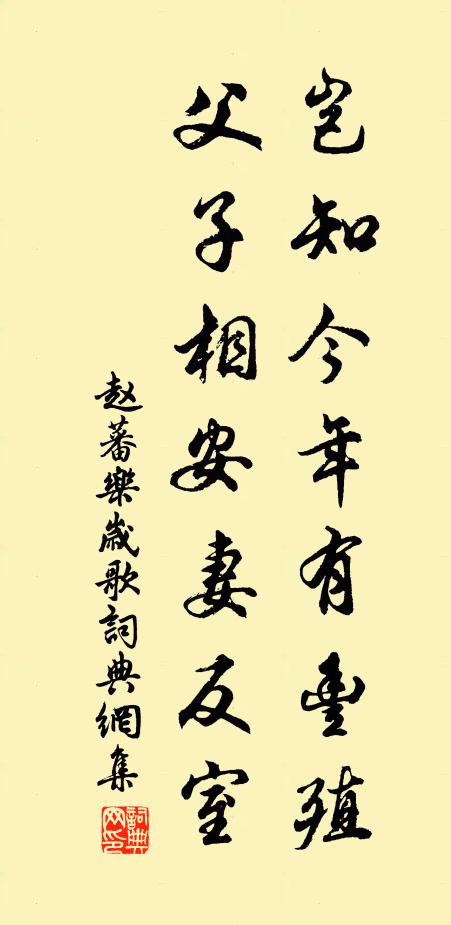 岂知今年有豊殖
父子相安妻反室
赵蕃樂歲歌詞典網集
詞典网印